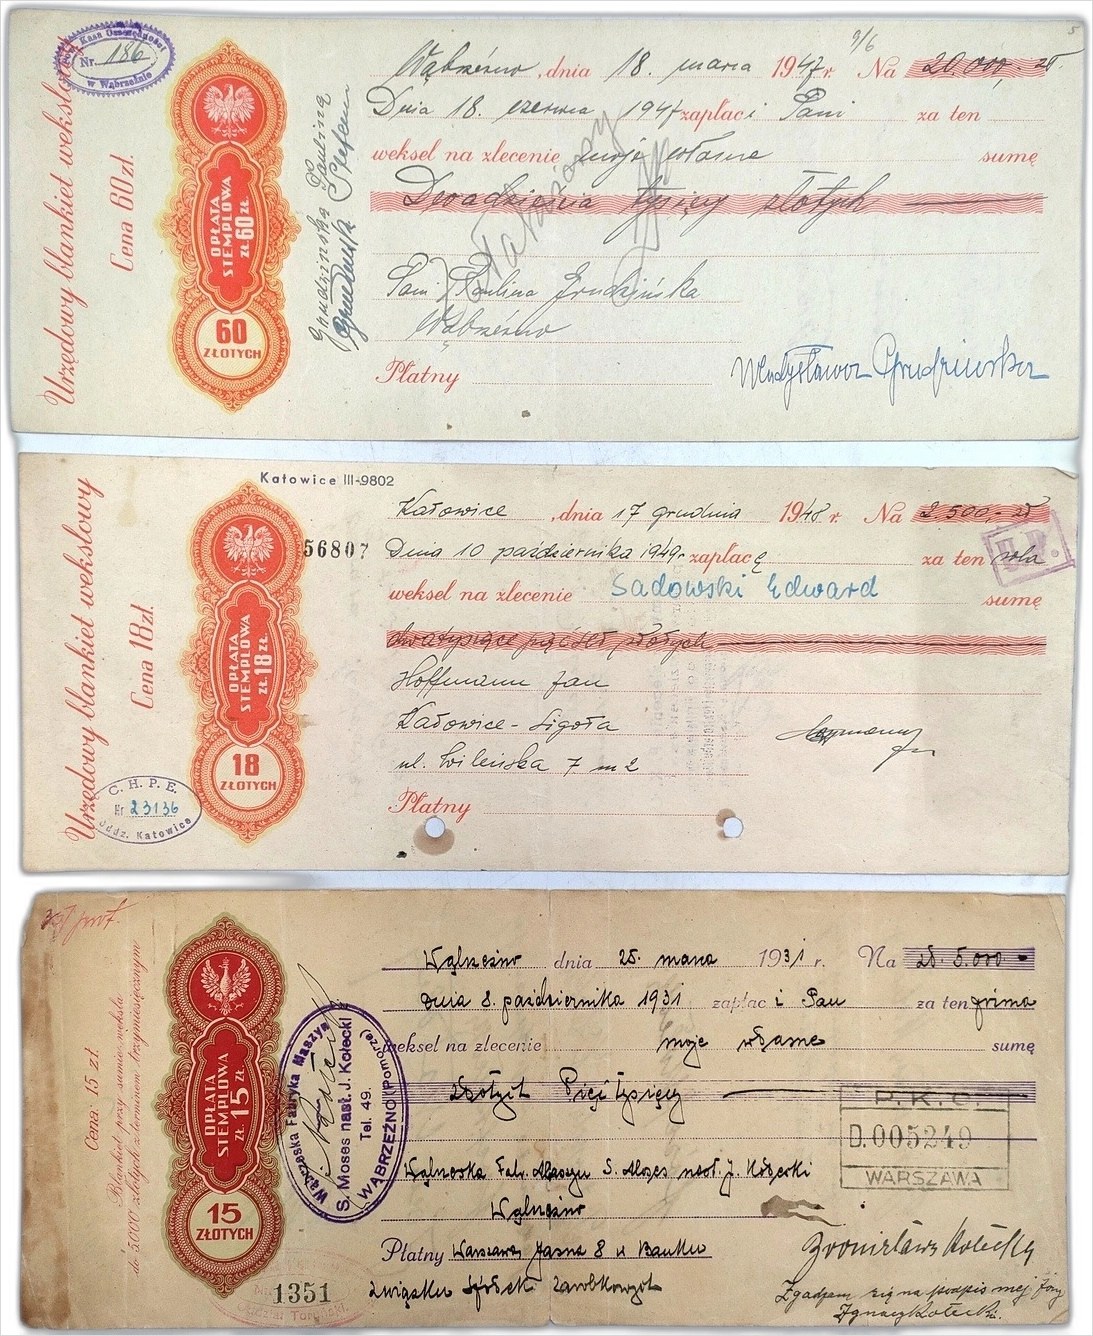 5
Kasa Oszczędności
Nr. 186
w Wąbrzeźnie
Urzędowy blankiet wekslowy
Cena 60 zł.
OPŁATA
STEMPLOWA
ZŁ. 60 ZŁ.
60
ZŁOTYCH
Grudzińska Paulina
9/6
Wąbrzeźno, dnia 18. marca 1947 r. Na 20.000,- zł.
Dnia 18. czerwca 1947 zapłaci Pani za ten
weksel na zlecenie moje własne sumę
Dwadzieścia tysięcy złotych
Pani Paulina Grudzińska
Wąbrzeźno
Płatny
Władysława Grudzińska
Katowice III-9802
56807
Urzędowy blankiet wekslowy
Cena 18 zł.
OPŁATA
STEMPLOWA
ZŁ. 18 ZŁ.
18
ZŁOTYCH
C. H. P. E.
Nr 23136
Oddz. Katowice
Katowice, dnia 17 grudnia 1948 r. Na 2.500,- zł
Dnia 10 października 1949 r. zapłacę za ten sola
weksel na zlecenie Sadowski Edward sumę
dwatysiące pięćset złotych
Hoffmann Jan
Katowice - Ligota
ul. Wileńska 7 m 2
Płatny
Cena: 15 zł
Blankiet przy sumie weksla
do 5.000 złotych z terminem trzymiesięcznym
OPŁATA
STEMPLOWA
ZŁ. 15 ZŁ.
15
ZŁOTYCH
Wąbrzeska Fabryka Maszyn
S. Moses nast. J. Kołecki
Tel. 49.
WĄBRZEŹNO (Pomorze)
1351
Wąbrzeźno dnia 25. marca 1931 r. Na zł. 5.000 -
dnia 8. października 1931 zapłaci Pan za ten prima
weksel na zlecenie moje własne sumę
złotych Pięć tysięcy
P. K. O.
D.005249
WARSZAWA
Wąbrzeska Fabr. Maszyn S. Moses nast. J. Kołecki
Wąbrzeźno
Płatny Warszawa Jasna 8 w Banku
Związku Spółek Zarobkowych
Bronisława Kołecka
Zgadzam się na podpis mej żony
Ignacy Kołecki.